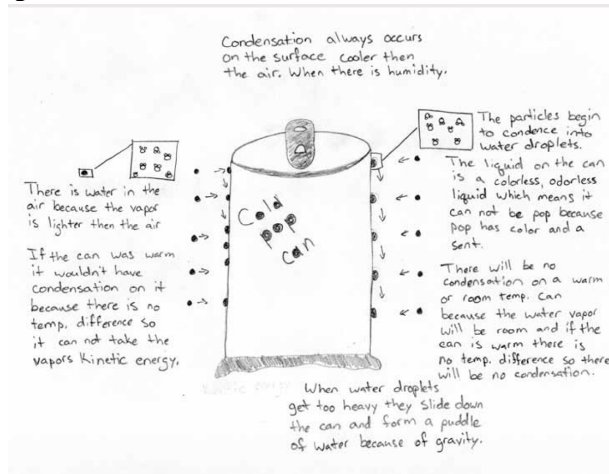 Condensation always occurs
on the surface cooler then
the air. When there is humidity.
There is water in the
air because the vapor
is lighter then the air
If the can was warm
it wouldn't have
condensation on it
because there is no
temp. difference so
it can not take the
vapors Kinetic energy.
Cold
pop
can
The particles begin
to condence into
water droplets.
The liquid on the can
is a colorless, odorless
liquid which means it
can not be pop because
pop has color and a
sent.
There will be no
condensation on a warm
or room temp. can
because the water vapor
will be room and if the
can is warm there is
no temp. difference so there
will be no condensation.
When water droplets
get too heavy they slide down
the can and form a puddle
of water because of gravity.